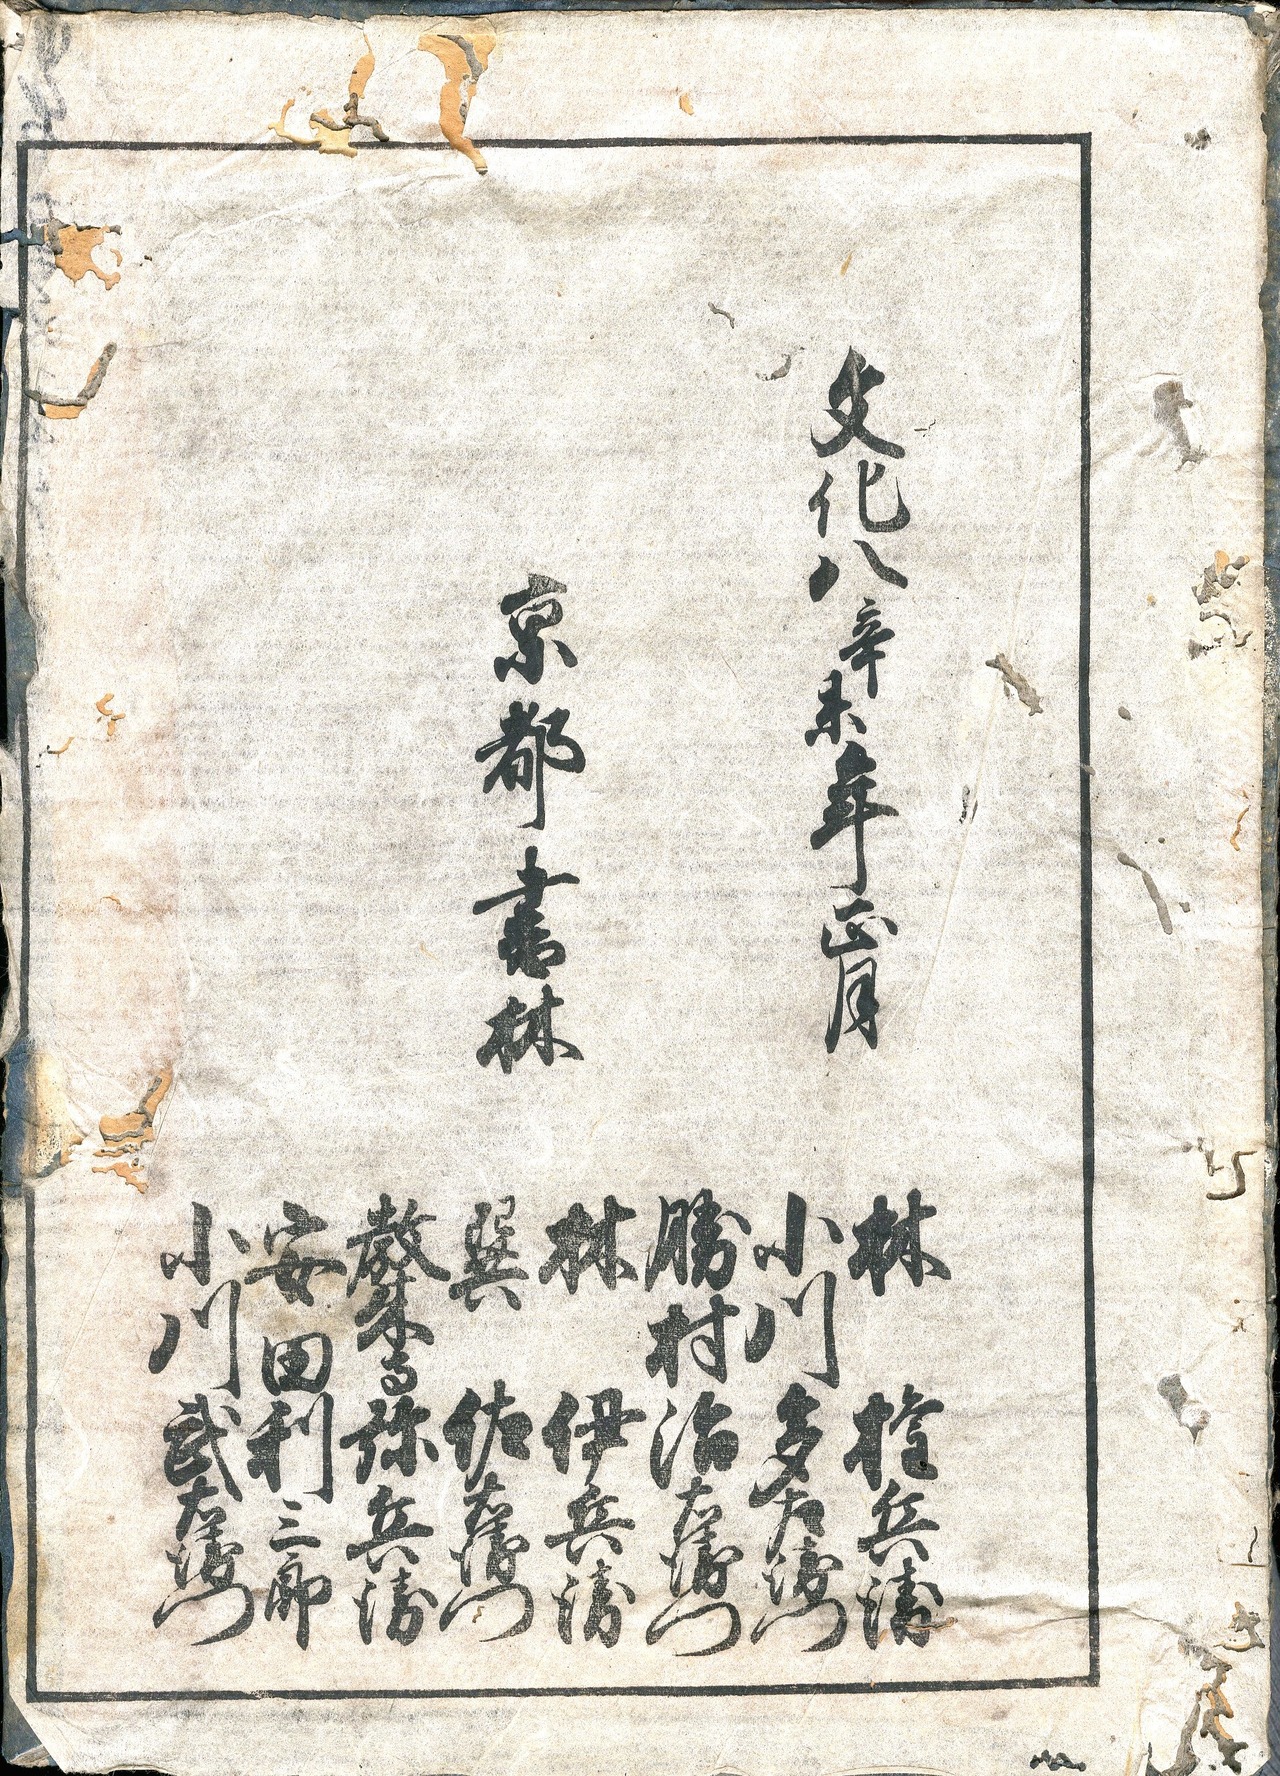 文化八辛未年正月
京都書林
林 権兵衛
小川多左衛門
勝村治右衛門
林 伊兵衛
巽 佐右衛門
鷲尾弥兵衛
安田利三郎
小川武右衛門